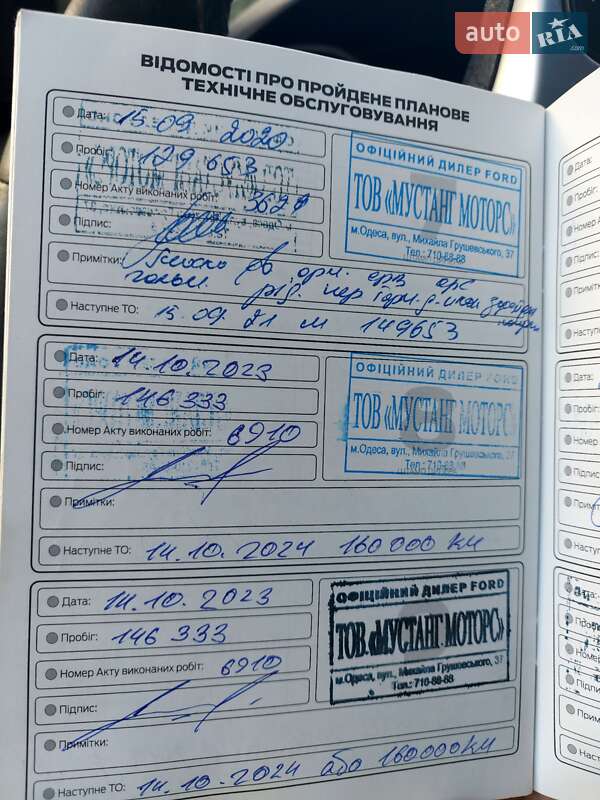 auto RIA .com
ВІДОМОСТІ ПРО ПРОЙДЕНЕ ПЛАНОВЕ
ТЕХНІЧНЕ ОБСЛУГОВУВАННЯ
Дата: 15.09. 2020
Пробіг: 129 653
Номер Акту виконаних робіт:
Підпис:
ОФІЦІЙНИЙ ДИЛЕР FORD
ТОВ «МУСТАНГ МОТОРС»
м.Одеса, вул., Михайла Грушевського, 37
Тел.: 710-88-88
Примітки:
Наступне ТО: 15.09.21 м 149653
Дата: 14.10.2023
Пробіг: 146 333
Номер Акту виконаних робіт: 6910
Підпис:
ОФІЦІЙНИЙ ДИЛЕР FORD
ТОВ «МУСТАНГ МОТОРС»
м.Одеса, вул., Михайла Грушевського, 37
Тел.: 710-88-88
Примітки:
Наступне ТО: 14.10.2024 160000 км
Дата: 14.10.2023
Пробіг: 146 333
Номер Акту виконаних робіт: 6910
Підпис:
ОФІЦІЙНИЙ ДИЛЕР FORD
ТОВ «МУСТАНГ МОТОРС»
м.Одеса, вул., Михайла Грушевського, 37
Тел.: 710-88-88
Примітки:
Наступне ТО: 14.10.2024 або 160000км
Дата:
Пробіг:
Номер А
Підпис:
Примітки
Наступн
Дата:
Пробіг:
Номер
Підпис
Наступ